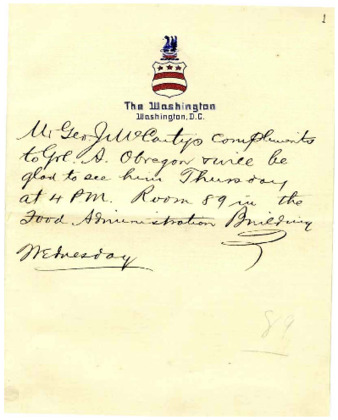 1
The Washington
Washington, D.C.
Mr Geo J. McCarty's compliments
to Gnl. A. Obregon & will be
glad to see him Thursday
at 4 P.M. Room 89 in the
Food Administration Building
Wednesday
89